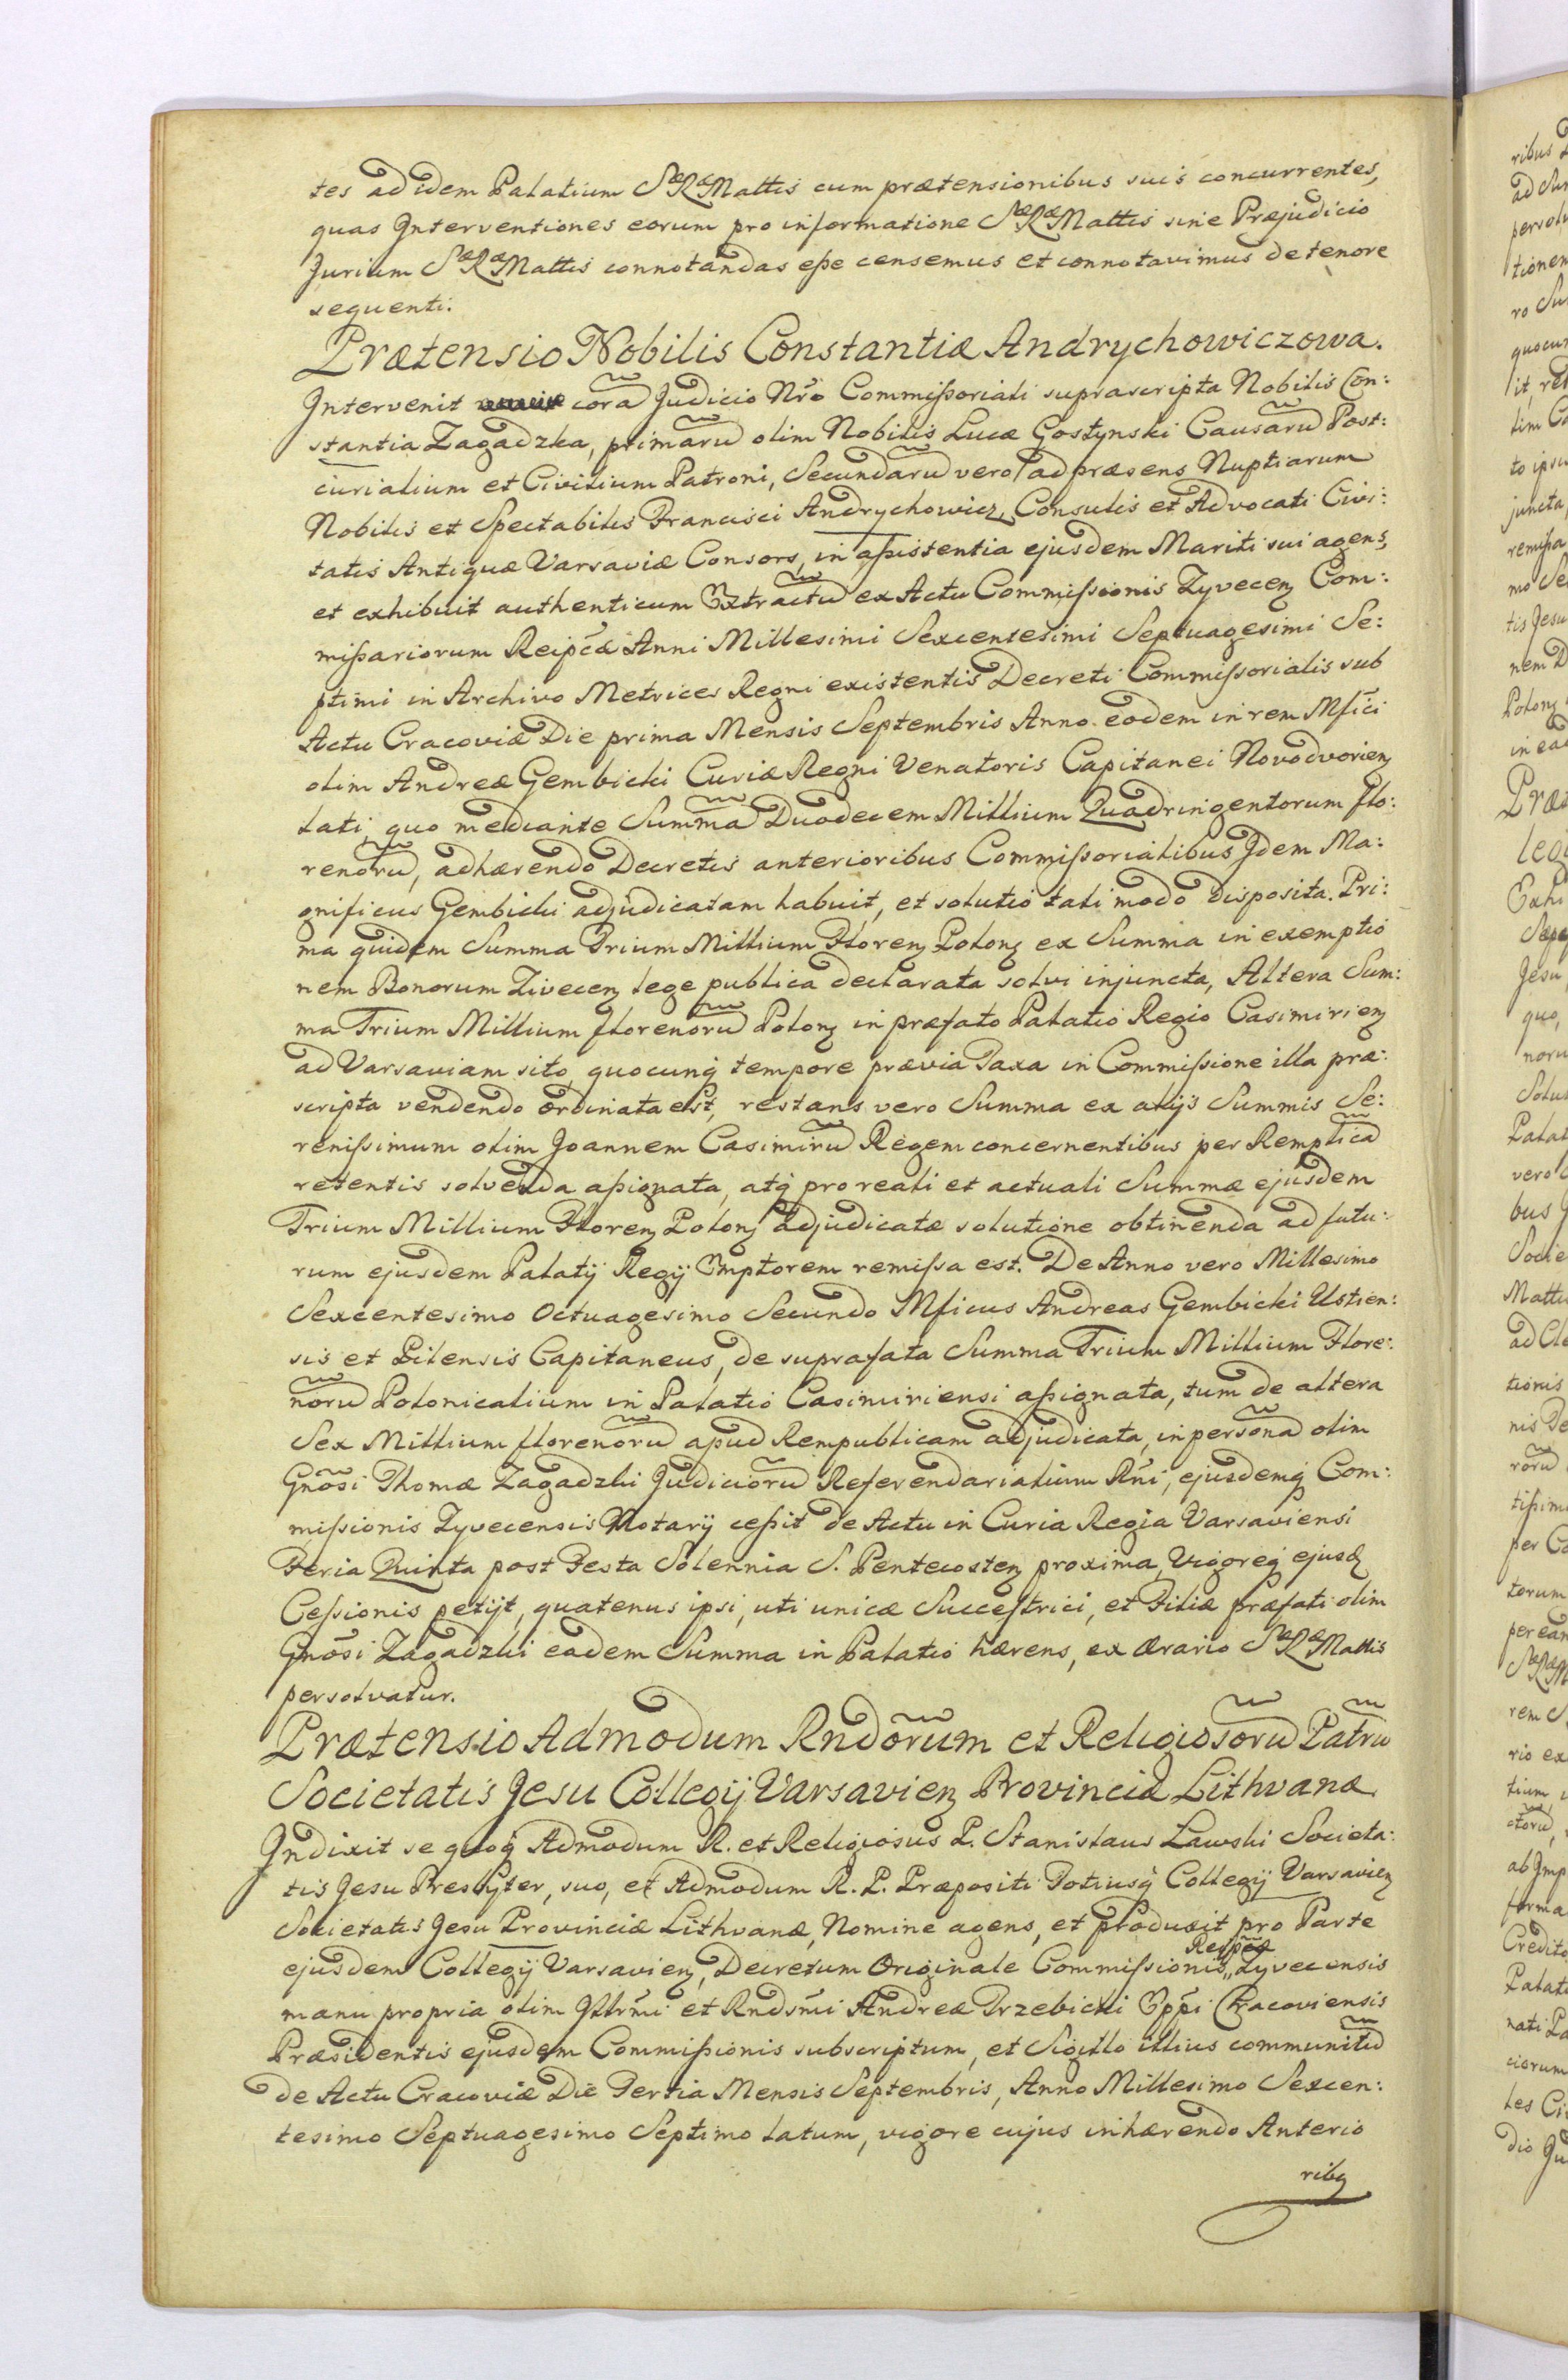 tes ad idem Palatium Sæ Ræ Mattis cum prætensionibus suis concurrentes,
quas Interventiones eorum pro informatione Sæ Ræ Mattis sine Præjudicio
Jurium Sæ Ræ Mattis connotandas eße censemus et connotavimus de tenore
sequenti.
Prætensio Nobilis Constantiæ Andrychowiczowa.
Intervenit cora Judicio Nro Commißoriali suprascripta Nobilis Con:
stantia Zagadzka, primaru olim Nobilis Lucæ Gostynski Causaru Post:
curialium et Civilium Patroni, Secundaru vero ad præsens Nuptiarum
Nobilis et Spectabilis Francisci Andrychowicz Consulis et Advocati Civi:
tatis Antiquæ Varsaviæ Consors, in aßistentia ejusdem Mariti sui agens,
et exhibuit authenticum Extractu ex Actu Commißionis Zyvecen Com:
mißariorum Reipcæ Anni Millesimi Sexcentesimi Septuagesimi Se:
ptimi in Archivo Metrices Regni existentis Decreti Commißorialis sub
Actu Cracoviæ Die prima Mensis Septembris Anno eodem in rem Mfici
olim Andreæ Gembicki Curiæ Regni Venatoris Capitanei Novodvorien
lati, quo mediante Summa Duodecem Millium Quadringentorum flo:
renoru, adhærendo Decretis anterioribus Commißorialibus Idem Ma:
gnificus Gembicki adjudicatam habuit, et solutio tali modo disposita. Pri:
ma quidem Summa Trium Millium Floren Polon ex Summa in exemptio
nem Bonorum Zivecen lege publica declarata solvi injuncta, Altera Sum:
ma Trium Millium florenoru Polon in præfato Palatio Regio Casimirien
ad Varsaviam sito, quocunq tempore prævia Taxa in Commißione illa præ:
scripta vendendo ordinata est, restans vero Summa ex alijs Summis Se:
renißimum olim Joannem Casimiru Regem concernentibus per Remplica
retentis solvenda aßignata, atq pro reali et actuali Summæ ejusdem
Trium Millium Floren Polon adjudicatæ solutione obtinenda ad futu:
rum ejusdem Palatij Regij Emptorem remißa est. De Anno vero Millesimo
Sexcentesimo Octuagesimo Secundo Mficus Andreas Gembicki Ustien:
sis et Pilensis Capitaneus, de suprafata Summa Trium Millium Flore:
noru Polonicalium in Palatio Casimiriensi aßignata, tum de altera
Sex Millium florenoru apud Rempublicam adjudicata, in persona olim
Gnosi Thomæ Zagadzki Judicioru Referendarialium Rni, ejusdemq Com:
mißionis Zyvecensis Notarij ceßit de Actu in Curia Regia Varsaviensi
Feria Quinta post Festa Solennia S. Pentecosten proxima, Vigoreq ejusd
Ceßionis petijt, quatenus ipsi, uti unicæ Succeßtrici, et Filiæ præfati olim
Gnosi Zagadzki eadem Summa in Palatio hærens, ex Ærario Sæ Ræ Mattis
persolvatur.
Prætensio Admodum Rndorum et Religiosoru Patru
Societatis Jesu Collegij Varsavien Provinciæ Lithvanæ
Indixit se quoq Admodum R. et Religiosus P. Stanislaus Lawski Societa:
tis Jesu Presbyter, suo, et Admodum R. P. Præpositi Totiusq Collegij Varsavien
Societatis Jesu Provinciæ Lithvanæ, Nomine agens, et produxit pro Parte
ejusdem Collegij Varsavien, Decretum Originale Commißionis Zyvecensis
manu propria olim Illrmi et Rndsmi Andreæ Trzebicki Eppi Cracoviensis
Præsidentis ejusdem Commißionis subscriptum, et Sigillo illius communitu
de Actu Cracoviæ Die Tertia Mensis Septembris, Anno Millesimo Sexcen:
tesimo Septuagesimo Septimo latum, vigore cujus inhærendo Anterio
ribq